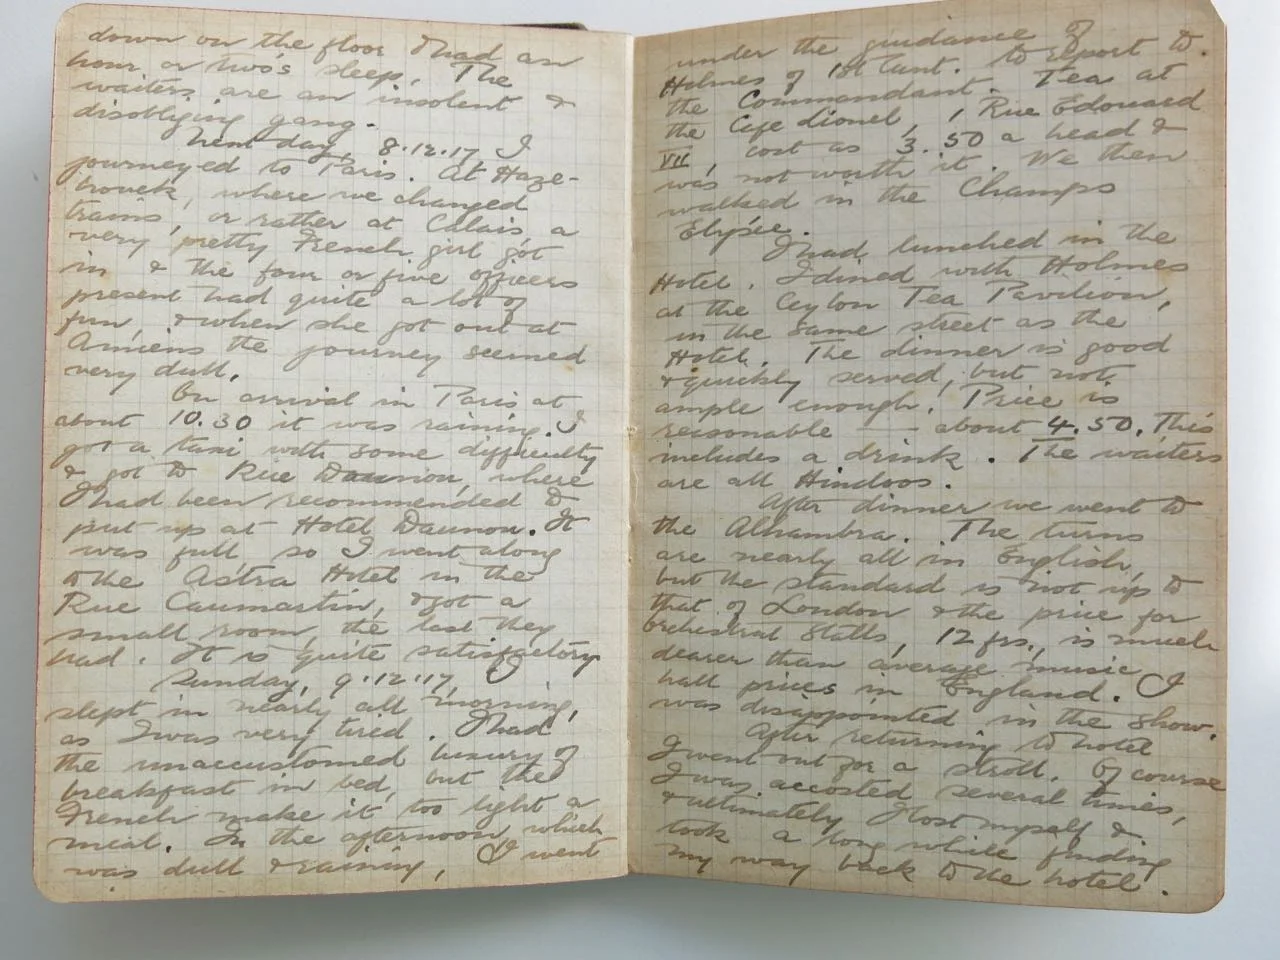 down on the floor & had an
hour or two's sleep. The
waiters are an insolent &
disobliging gang.
Next day, 8.12.17 I
journeyed to Paris. At Haze-
brouck, where we changed
trains, or rather at Calais, a
very pretty French girl got
in & the four or five officers
present had quite a lot of
fun, & when she got out at
Amiens the journey seemed
very dull.
On arrival in Paris at
about 10.30 it was raining. I
got a taxi with some difficulty
& got to Rue Daunou, where
I had been recommended to
put up at Hotel Daunou. It
was full, so I went along
to the Astra Hotel in the
Rue Caumartin, & got a
small room, the last they
had. It is quite satisfactory
Sunday, 9.12.17, I
slept in nearly all morning,
as I was very tired. I had
the unaccustomed luxury of
breakfast in bed, but the
French make it too light a
meal. In the afternoon, which
was dull & raining, I went
under the guidance of
Holmes of 1st Cant. to report to
the Commandant. Tea at
the Cafe Lionel, 1 Rue Edouard
VII, cost us 3.50 a head &
was not worth it. We then
walked in the Champs
Elysée.
I had lunched in the
Hotel. I dined with Holmes
at the Ceylon Tea Pavilion,
in the same street as the
Hotel. The dinner is good
& quickly served, but not
ample enough. Price is
reasonable - about 4.50. This
includes a drink. The waiters
are all Hindoos.
After dinner we went to
the Alhambra. The turns
are nearly all in English,
but the standard is not up to
that of London & the price for
orchestral stalls, 12 frs., is much
dearer than average music
hall prices in England. I
was disappointed in the show.
After returning to hotel
I went out for a stroll. Of course
I was accosted several times,
& ultimately I lost myself &
took a long while finding
my way back to the hotel.